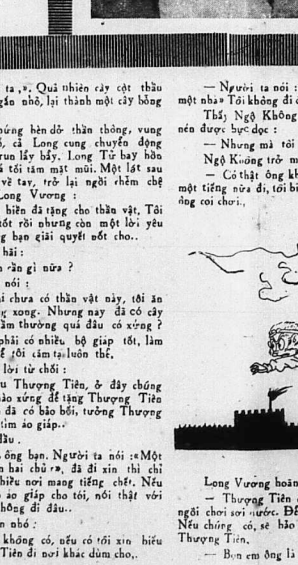 ta ,». Quả nhiên cây cột thần
gắn nhỏ, lại thành một cây bỗng
ứng bèn dở thần thông, vung
, cả Long cung chuyển động
run lẩy bẩy. Long Tử bay hồn
tối tăm mặt mũi. Một lát sau
về tay, trở lại ngồi chễm chệ
Long Vương :
hiền đã tặng cho thần vật. Tôi
tốt rồi nhưng còn một lời yêu
g bạn giải quyết nốt cho..
hãi :
cần gì nữa ?
nói :
i chưa có thần vật này, tôi ăn
g xong. Nhưng nay đã có cây
ầm thường quá đâu có xứng ?
phải có nhiều bộ giáp tốt, làm
tôi cám tạ luôn thể.
lời từ chối :
u Thượng Tiên, ở đây chúng
nào xứng để tặng Thượng Tiên
đã có bảo bối, tưởng Thượng
tìm áo giáp..
đầu .
ông bạn. Người ta nói :«Một
n hai chủ », đã đi xin thì chỉ
hiều nơi mang tiếng chết. Nếu
áo giáp cho tôi, nói thật với
không đi đâu..
n nhỏ :
không có, nếu có tôi xin hiếu
Tiên đi nơi khác dùm cho,.
— Người ta nói :
một nhà» Tôi không đi
Thấy Ngộ Không
nén được bực dọc :
— Nhưng mà tôi
Ngộ Không trở m
— Có thật ông kh
một tiếng nữa đi, tới bi
ông coi chơi.,
Long Vương hoãn
— Thượng Tiên
ngồi chơi sơi nước. Để
Nếu chúng có, sẽ bảo
Thượng Tiên.
— Bọn em ông là